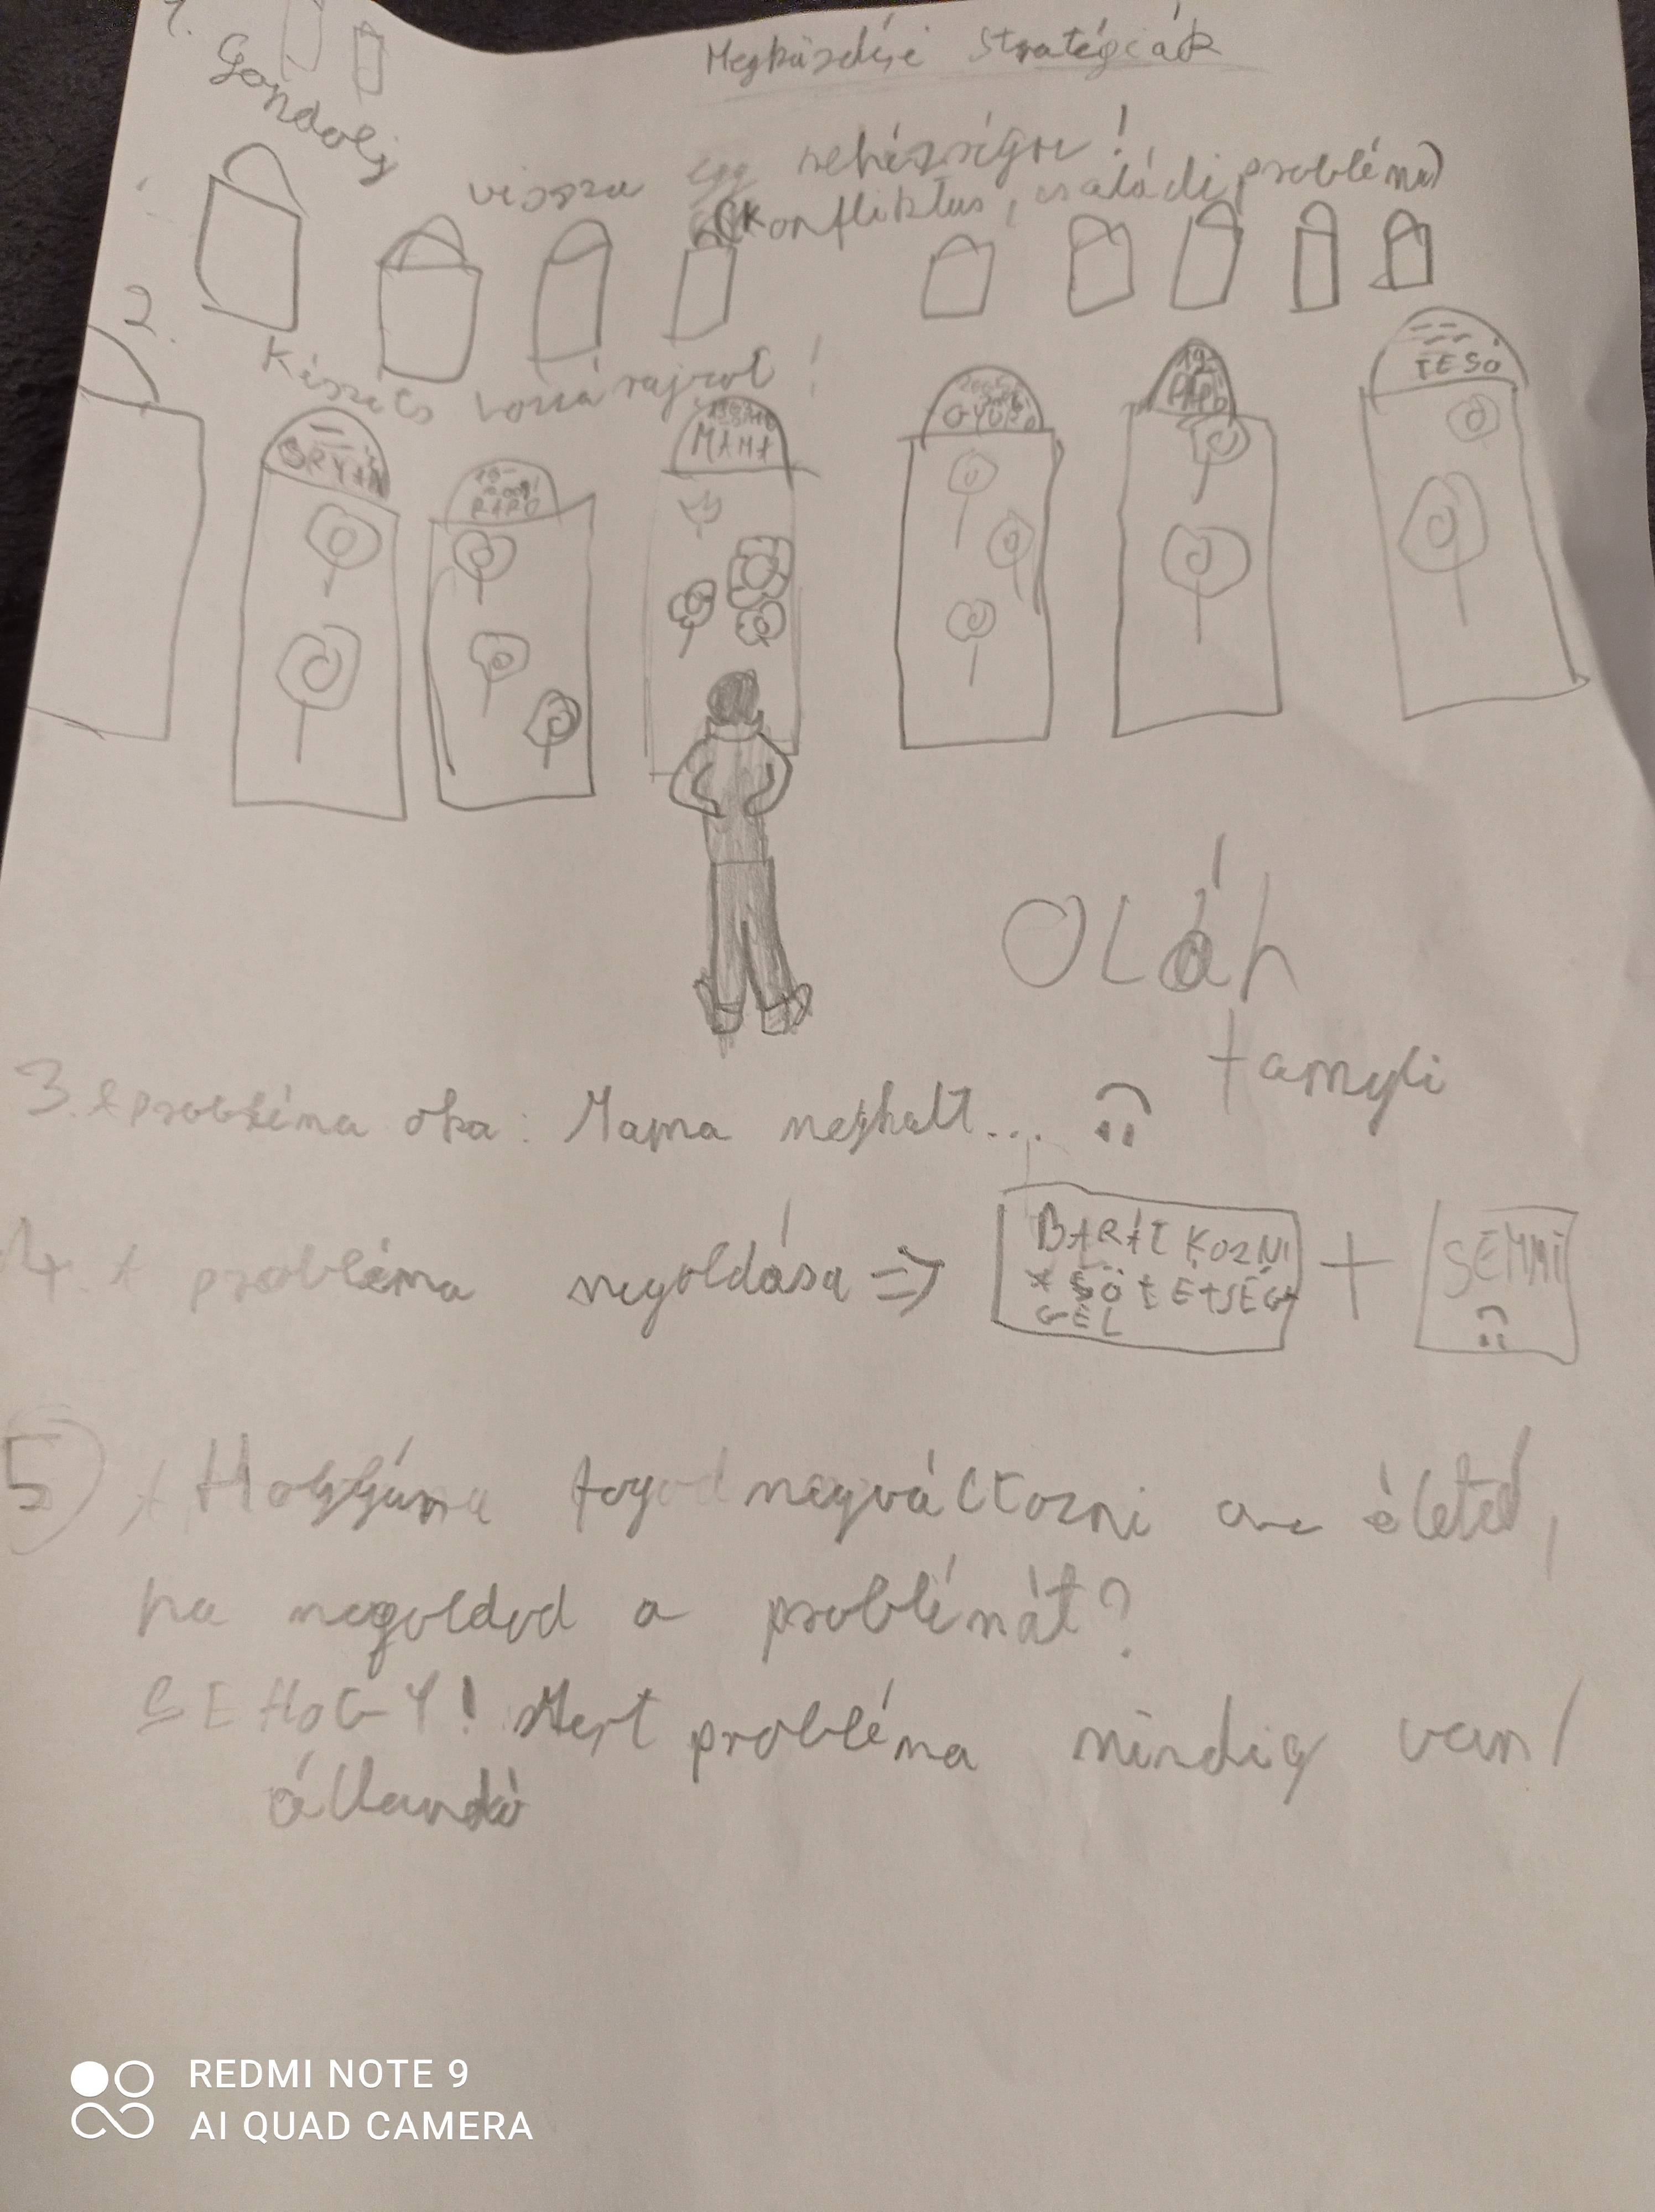 Megküzdési stratégiák
1. Gondolj vissza egy nehézségre!
(Konfliktus, családi probléma)
2.
Készíts hozzá rajzot!
BRYAN
PAPÓ
MAMA
GYURÓ
PAPÓ
TESÓ
OLáh
tamyli
3. A probléma oka: Mama meghalt... :(
4. A probléma megoldása => BARÁTKOZNI + SEMMI
A SÖTÉTSÉG
GEL :(
5) Hogyan fog megváltozni az életed,
ha megoldod a problémát?
SEHOGY! Mert probléma mindig van/
állandó
REDMI NOTE 9
AI QUAD CAMERA